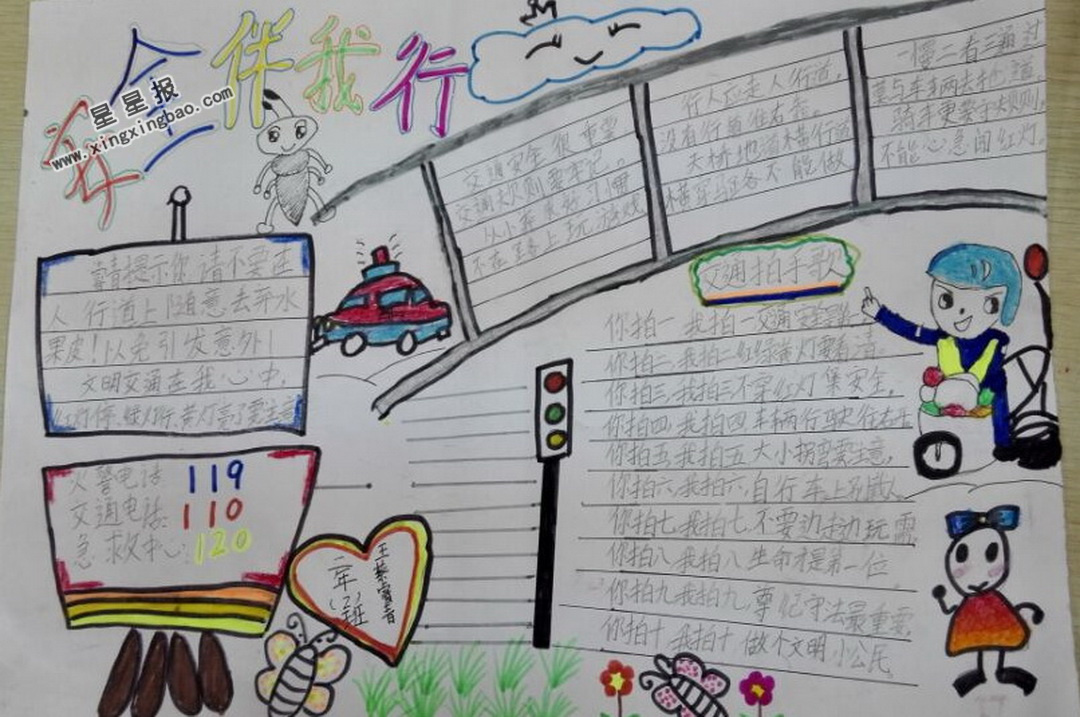 安全伴我行
星星报
www.xingxingbao.com
交通安全很重要
交通规则要牢记
从小养成好习惯
不在路上玩游戏
行人应走人行道,
没有行道往右靠
天桥地道横行道
横穿马路不能做
一慢二看三通过
莫与车辆去抢道,
骑车更要守规则,
不能心急闯红灯。
提示你,请不要在
人行道上随意丢弃水
果皮!以免引发意外!
文明交通在我心中,
红灯停、绿灯行、黄灯亮了要注意
火警电话 119
交通电话: 110
急救中心: 120
二年(7)班
交通拍手歌
你拍一我拍一交通安全
你拍二,我拍二红绿黄灯要看清。
你拍三,我拍三不穿红灯保安全。
你拍四,我拍四,车辆行驶往右
你拍五,我拍五大小拐弯要注意,
你拍六,我拍六,自行车上别
你拍七,我拍七,不要边走边玩
你拍八,我拍八生命才是第一位
你拍九,我拍九,尊纪守法最重要
你拍十,我拍十做个文明小公民